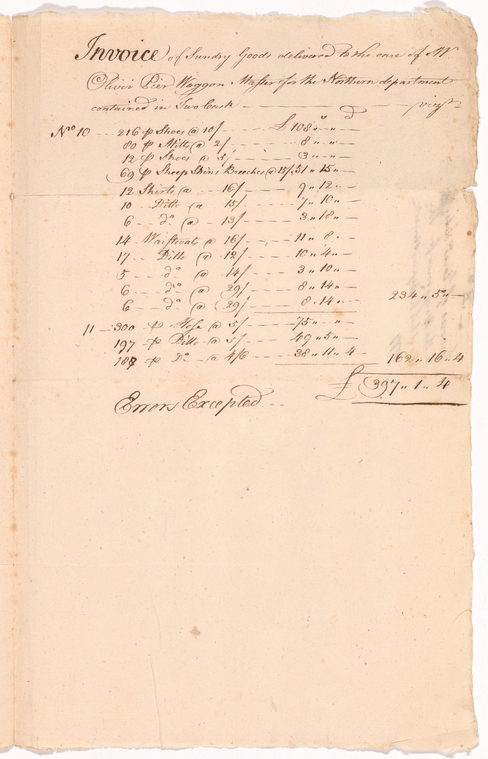 Invoice of Sundry Goods delivered to the care of Mr
Oliver Peir Waggon Master for the Northern department
contained in Two Cask — vizt
No 10 216 p Shoes @ 10/ £ 108 " " —
80 p Mitts @ 2/ 8 " " —
12 p Shoes @ 5/ 3 " " —
69 p Sheep Skins Breeches @ 15/ 51 " 15 " —
12 Shirts @ 16/ 9 " 12 " —
10 Ditto @ 15/ 7 " 10 " —
6 do @ 13/ 3 " 18 " —
14 Waistcoats @ 16/ 11 " 8 " —
17 Ditto @ 12/ 10 " 4 " —
5 do @ 14/ 3 " 10 " —
6 do @ 29/ 8 " 14 " —
6 do @ 29/ 8 " 14 " — 234 " 5 " —
11 300 p Hose @ 5/ 75 " " —
197 p Ditto @ 5/ 49 " 5 " —
187 p Do @ 4/6 38 " 11 " 4 — 162 " 16 " 4
£ 397 " 1 " 4
Errors Excepted